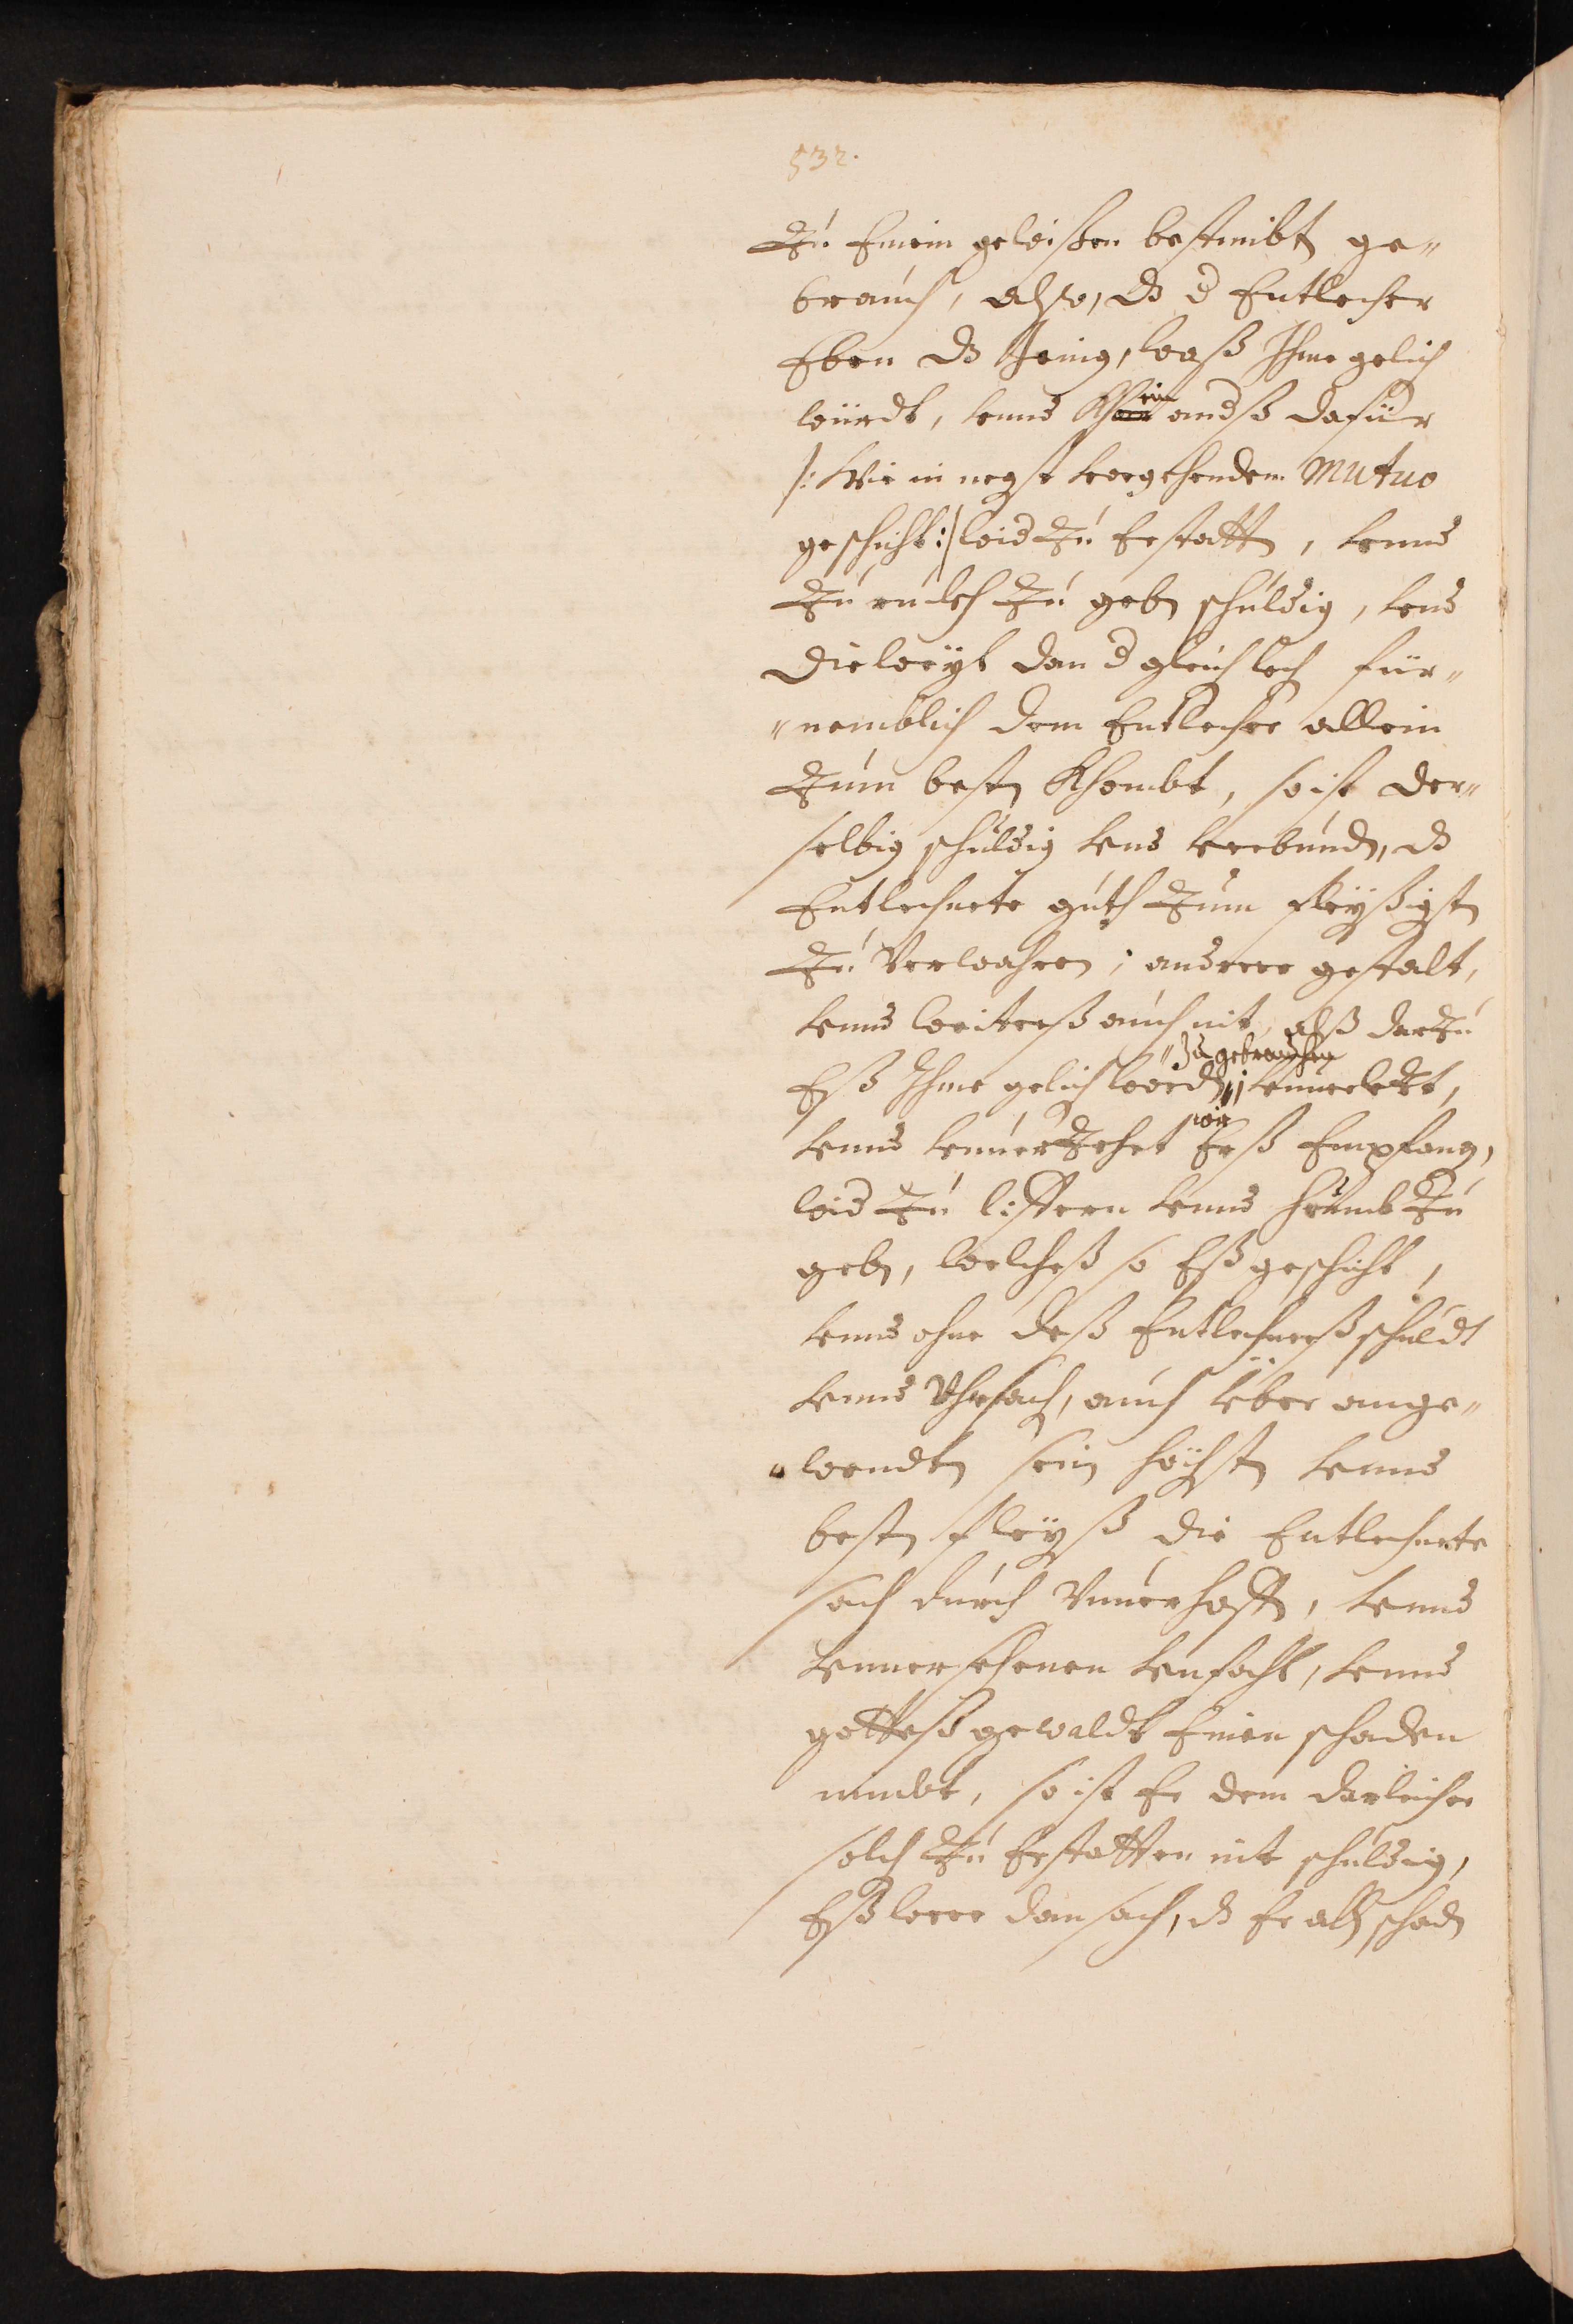 532.
Zu Einem gewissen bestimbt ge„
brauch, also, dz d Entlecher
Eben dz Jenig, waß Ihme gelich
würdt, vnnd Khein andß dafür
/: wie in negst vorgehendem Mutuo
geschicht :/ wid zu Erstattn, vnnd
zu ruckh zu gebn schuldig, vnd
dieweyl dan d gleich lech für„
„nemblich dem Entlecher allein
zum bestn Khombt, so ist der„
selbig schuldig vnd verbundn, dz
Entlechnete guth zum fleyßigstn
zu Verwahren, anderer gestalt,
vnnd weiterß auch nit, alß darzu
„zu gebrauchen
Eß Ihme gelich wordn, vnuerlezt,
wie
vnnd vnuerzehrt Erß Empfang,
wid zu liffern vnnd heimb zu
gebn, welcheß so Eß geschicht,
vnnd ohne deß Entlechnerß schuldt
vnnd Vhrsach, auch über ange„
„wendtn sein höchstn vnnd
bestn fleyß die Entlechnete
sach durch Vnuerhofft, vnnd
vnuersehenen vnfahl, vnnd
gotteß gewaldt Einen schaden
nimbt, so ist Er dem darleicher
solch zu Erstatten nit schuldig,
Eß were dan sach, dz Er alln schadn